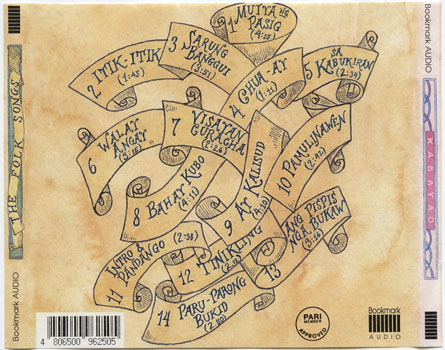 Bookmark AUDIO
THE FOLK SONGS
Bookmark AUDIO
1 MUTYA NG
PASIG
(4:25)
2 ITIK-ITIK
(1:45)
3 SARUNG
BANGGUI
(3:51)
4 CHUA-AY
(1:11)
5 SA
KABUKIRAN
(2:34)
6 WALAY
ANGAY
(3:15)
7 VISAYAN
CURACHA
8 BAHAY KUBO
(4:11)
9 AY KALISUD
(4:10)
10 PAMULINAWEN
(2:42)
11 INTRO &
DANDANGO
(2:38)
12 TINIKLING
13 ANG PISPIS
NGA BUKAW
14 PARU-PARONG
BUKID
4 806500 962505
PARI
MEMBER
APPROVED
Bookmark
AUDIO
Bookmark AUDIO
KABAYAO